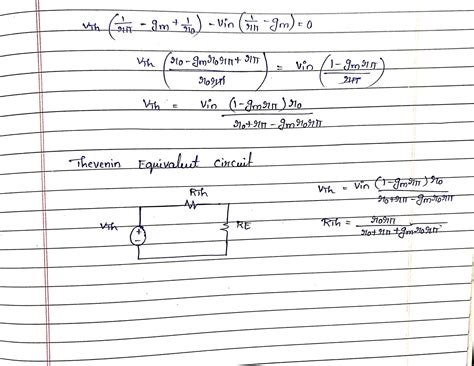 Vth (1/rπ - gm + 1/r0) - Vin (1/rπ - gm) = 0
Vth (r0 - gm r0 rπ + rπ / r0 rπ) = Vin (1 - gm rπ / rπ)
Vth = Vin (1 - gm rπ) r0 / r0 + rπ - gm r0 rπ
Thevenin Equivalent circuit
Rth
Vth
+
-
RE
Vth = Vin (1 - gm rπ) r0 / r0 + rπ - gm r0 rπ
Rth = r0 rπ / r0 + rπ + gm r0 rπ